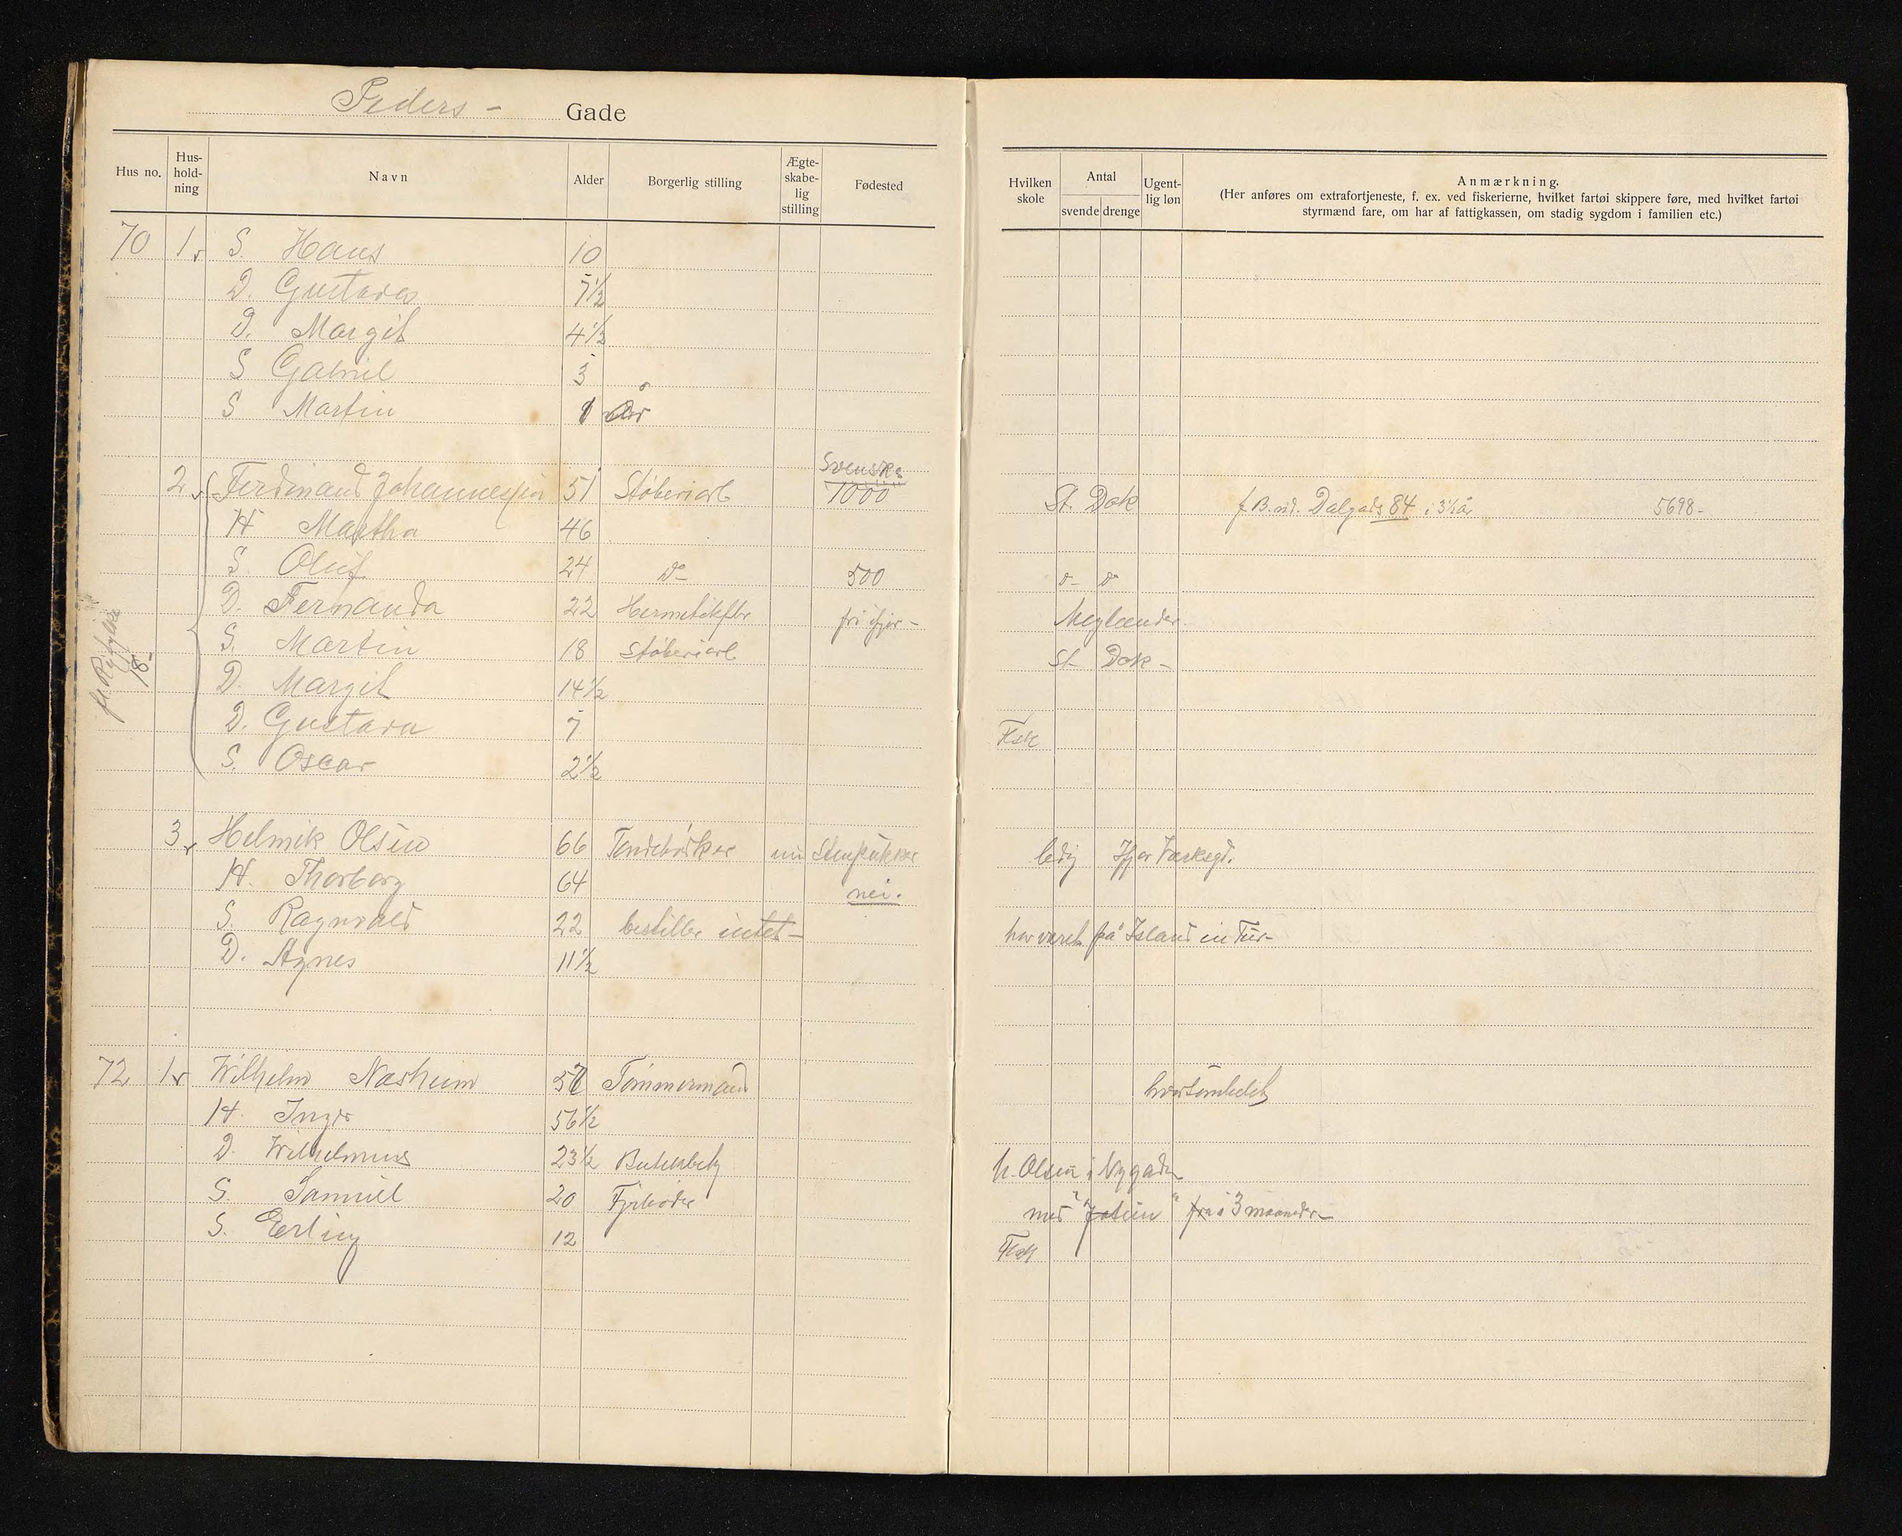 Peders - Gade
Hus no. Hus-hold-ning Navn Alder Borgerlig stilling Ægte-skabe-lig stilling Fødested
Hvilken skole Antal svende drenge Ugent-lig løn Anmærkning.
(Her anføres om extrafortjeneste, f. ex. ved fiskerierne, hvilket fartøi skippere føre, med hvilket fartøi
styrmænd fare, om har af fattigkassen, om stadig sygdom i familien etc.)
70 1 S. Hans 10
D. Gustava 7½
D. Margit 4½
S Gabriel 3
S Martin 1 År
Svenske
2 Ferdinand Johannessen 51 Støberiarb 1000 St. Dok Dalgads 84 i 3½ år 5698-
H Martha 46
S. Oluf 24 do 500 do do
D. Fernanda 22 Hermetikfbr fri ifjor - Meglænder
S. Martin 18 Støberiarb St Dok -
D. Margit 14½
D. Gustava 7 Fsk
S. Oscar 2½
18-
3 Helmik Olsen 66 Tøndebødker nu ledig Ifjor
H. Thorborg 64 nei.
S. Ragnvald 22 bestiller intet- har været på Island en Tur-
D. Agnes 11½
72 1 Wilhelm Nasheim Tømmermand
H. Inger 56½
D. Wilhelmine 23½ Butikbetj H. Olsen i Nygaden
S. Samuel 20 Fyrbøder med "Jotun" fra i 3 maaneder-
S. Erling 12 Fsk